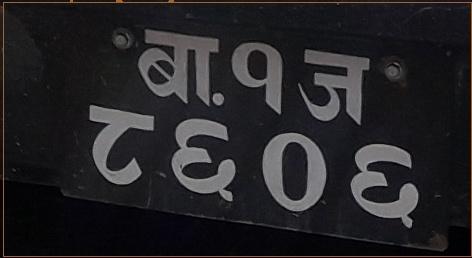 बा.१ज
८६०६